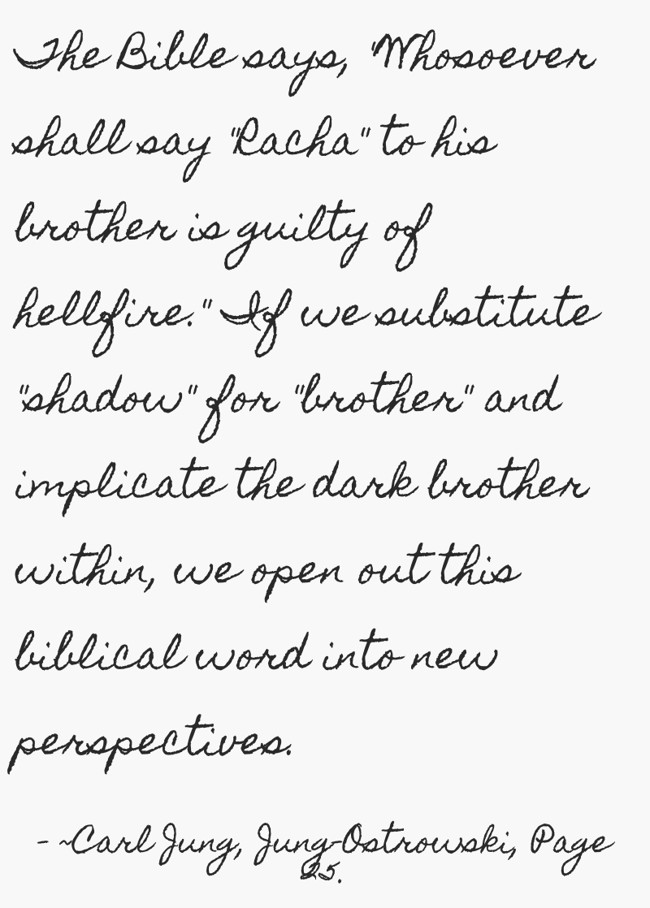 The Bible says, "Whosoever
shall say "Racha" to his
brother is guilty of
hellfire." If we substitute
"shadow" for "brother" and
implicate the dark brother
within, we open out this
biblical word into new
perspectives.
- ~Carl Jung, Jung-Ostrowski, Page
25.